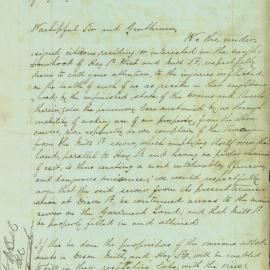 Worshipful Sir and Gentlemen,
We the under-
signed citizens residing, or interested in the neigh-
bourhood of Hay St West and Mill St, respectfully
desire to call your attention, to the injuries inflicted
on the health of such of us as reside in that neighbour-
hood, by the unfinished state of the drains and
therein, also the pecuniary loss sustained by us through
inability of making use of our property, from the above
causes, and especially do we complain of the
from the Mill St sewer, which emptying itself over the
land, parallel to Hay St and having no proper
of exit, is thus making a most unhealthy
and dangerous nuisance; we would respectfully
urge that the said sewer from its present termin-
ation at Dixon St, be continued across to the main
river on the Government Land, and that Mill St
be properly filled in and altered
If this be done the proprietors of the various allot-
ments in Dixon, Mill, and Hay Sts. will be enabled
their respective lots, and the